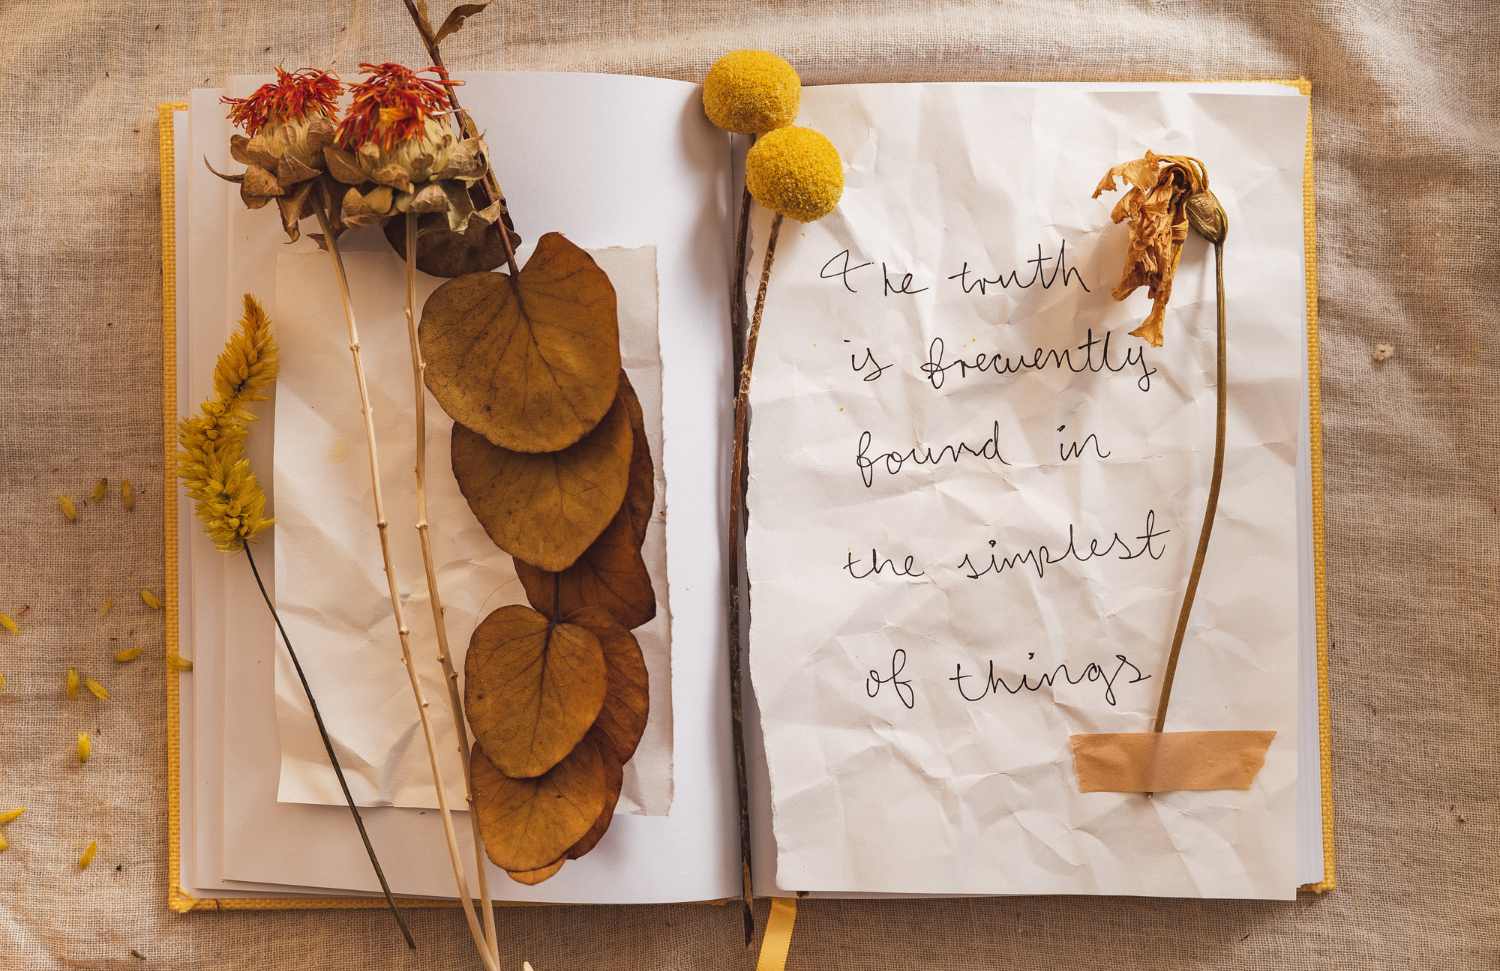 The truth
is frecuently
found in
the simplest
of things